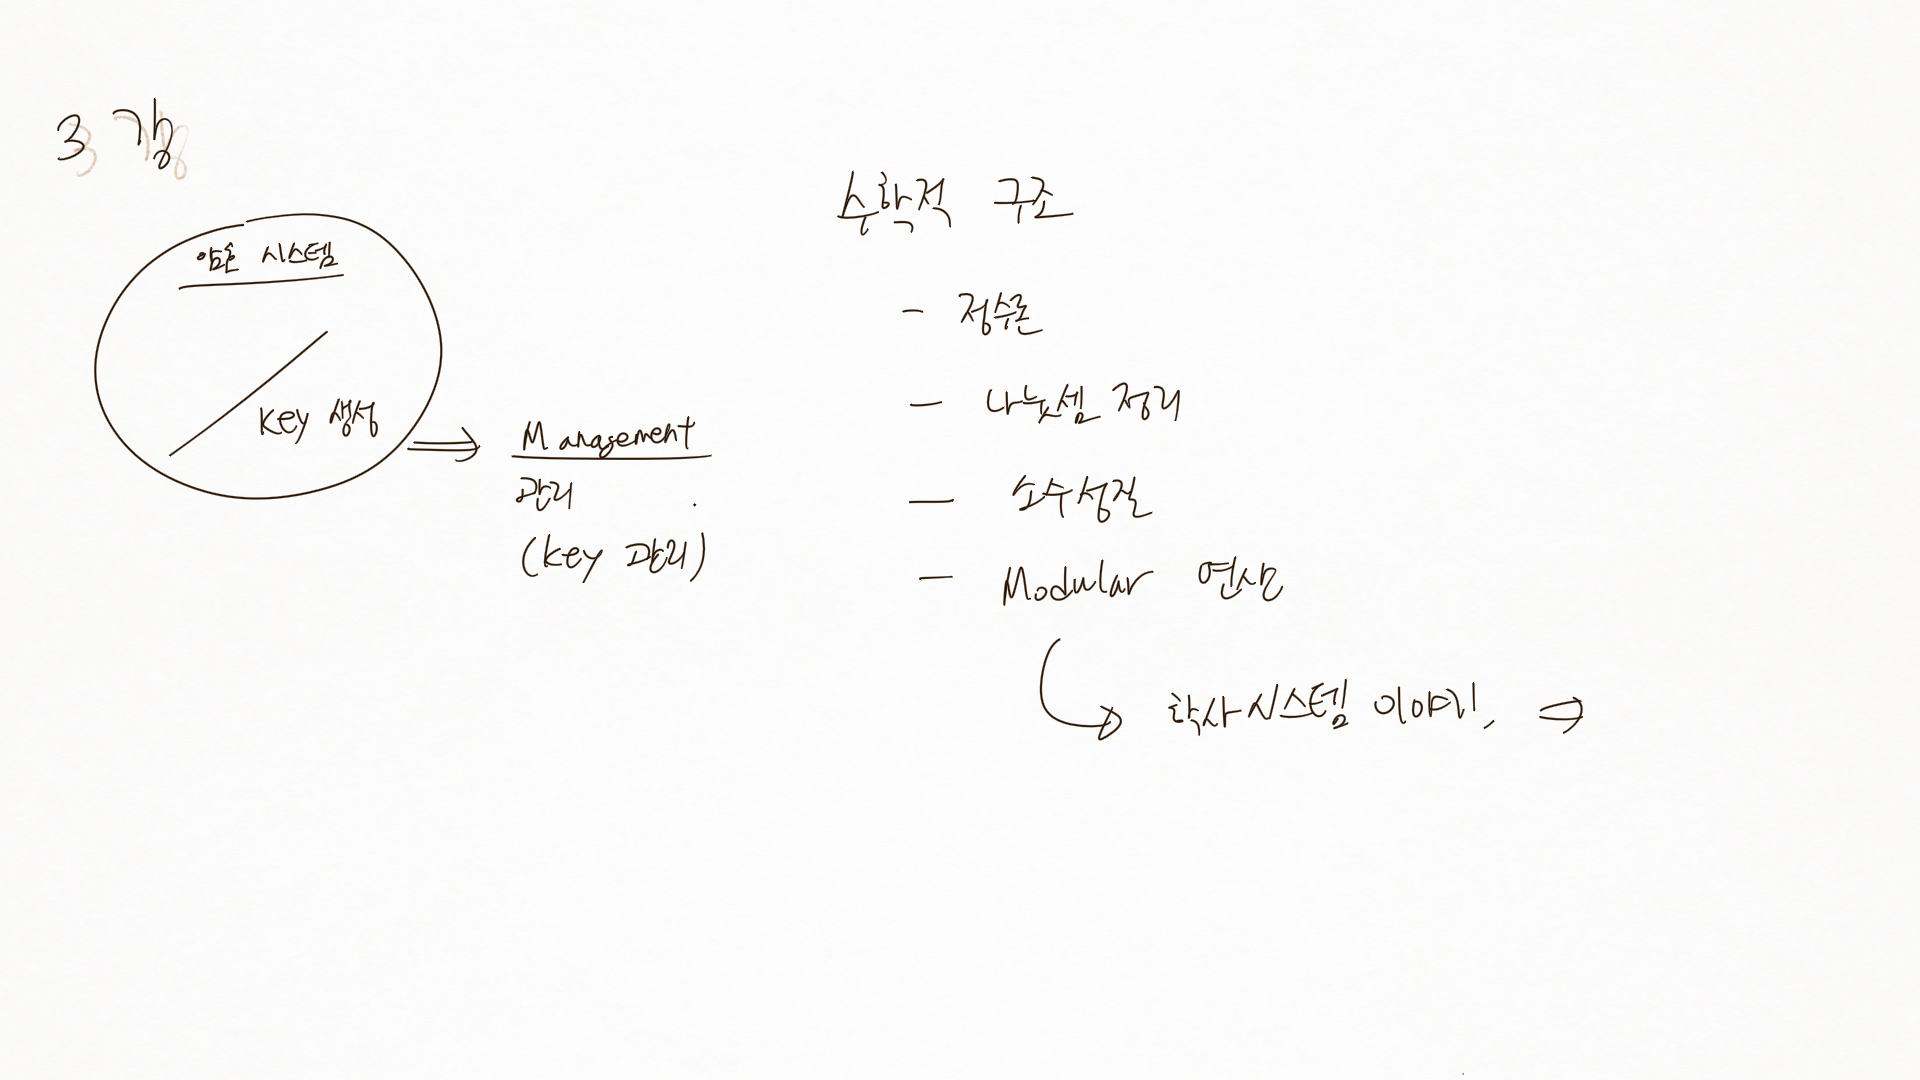 3 강
암호 시스템
Key 생성
Management
관리
(Key 관리)
수학적 구조
- 정수론
- 나눗셈 정리
- 소수성질
- Modular 연산
학사시스템 이야기, ⇒